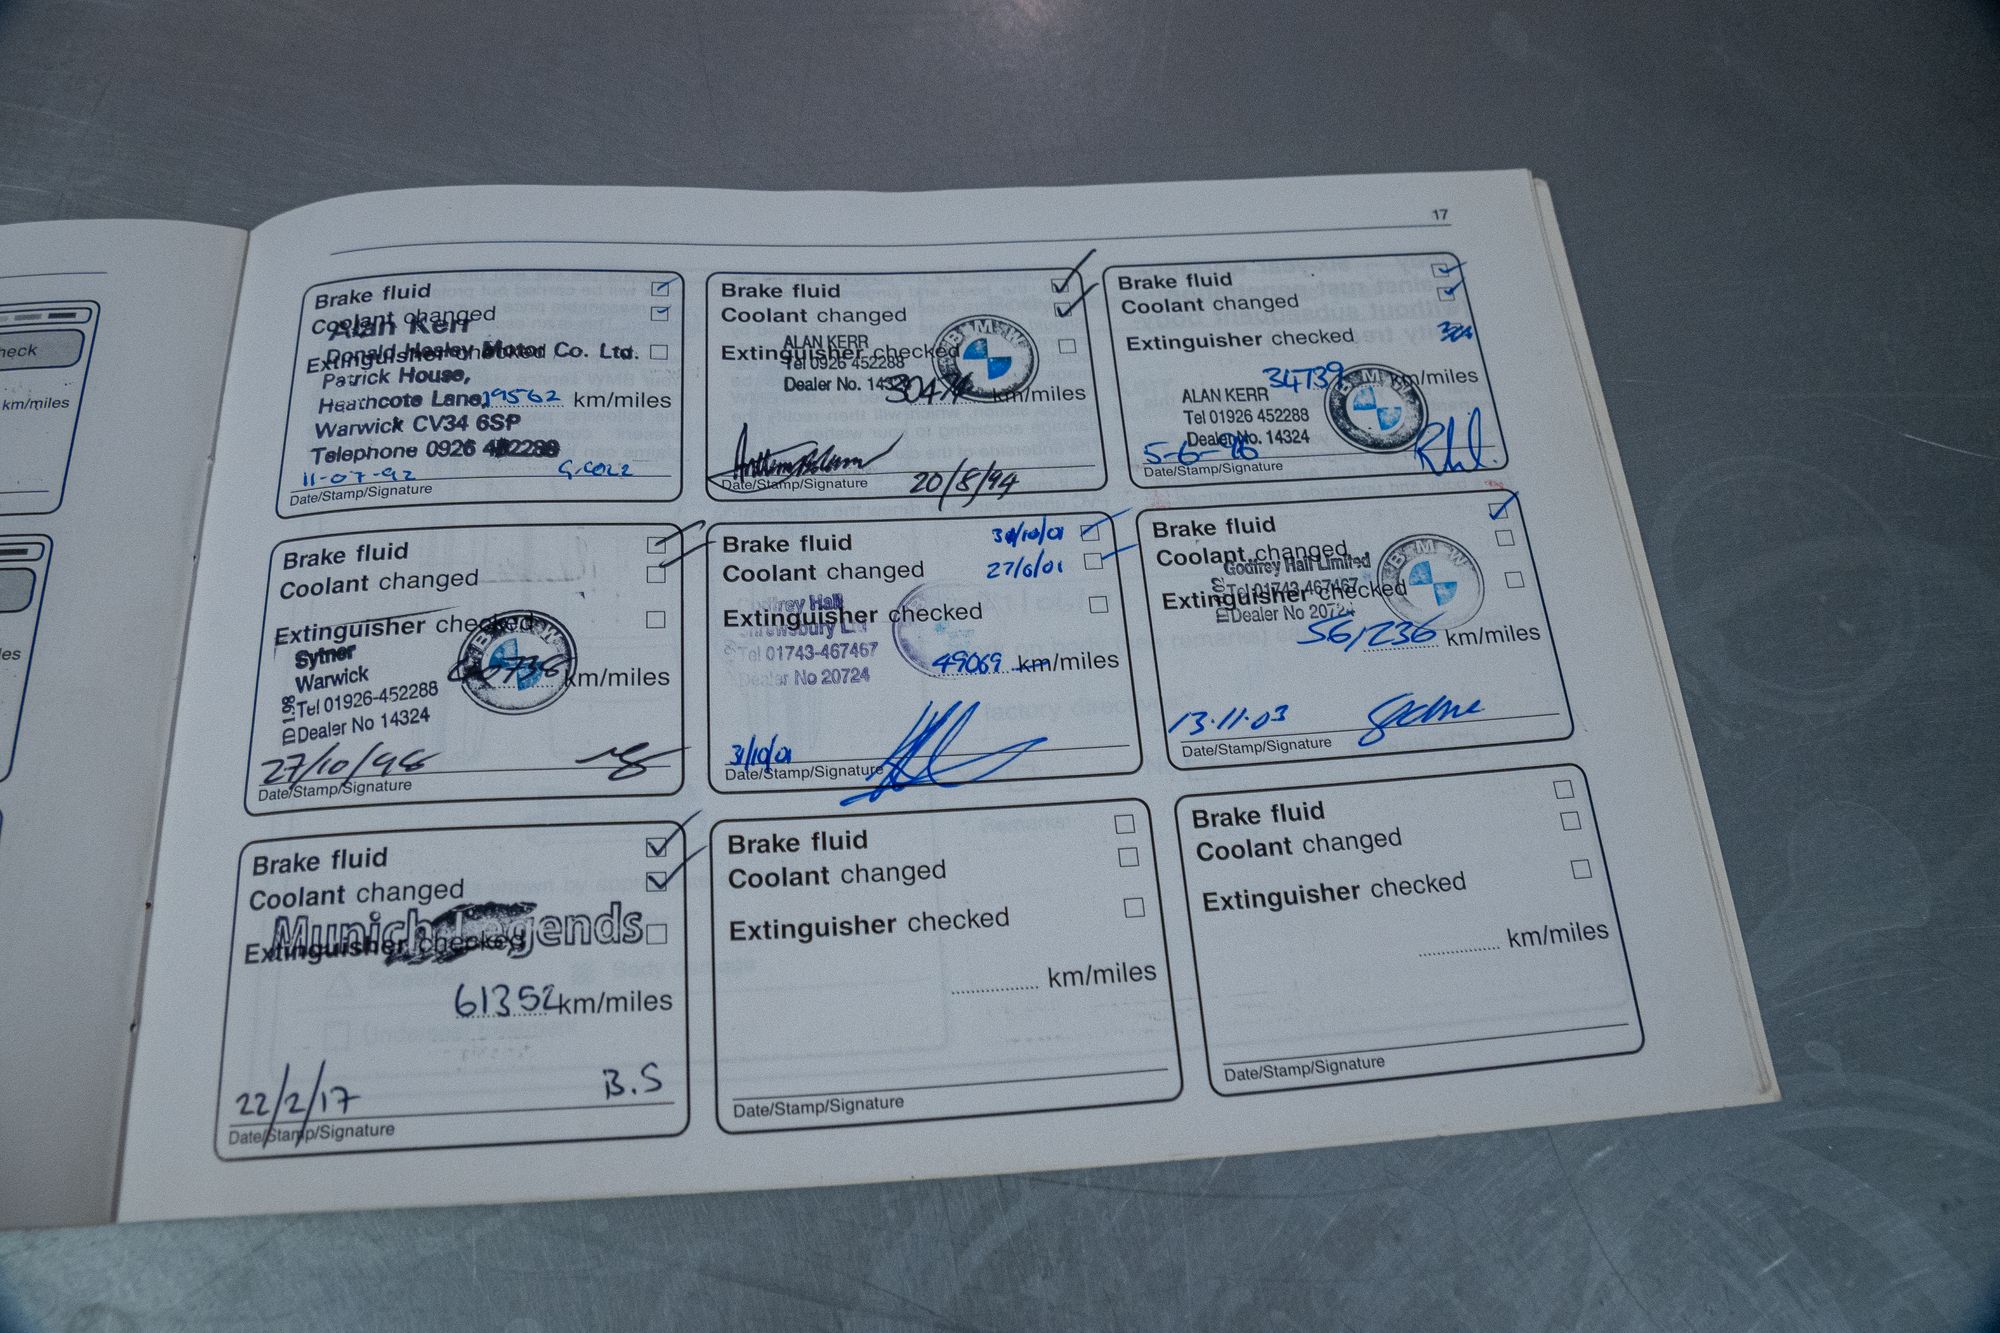 heck
km/miles
les
17
Brake fluid
Coolant changed
Alan Kerr
Extinguisher checked
Donald Healey Motor Co. Ltd.
Patrick House,
Heathcote Lane,
19562 km/miles
Warwick CV34 6SP
Telephone 0926 452288
11-07-92
Date/Stamp/Signature
Brake fluid
Coolant changed
ALAN KERR
Extinguisher checked
Tel 0926 452288
Dealer No. 14324
km/miles
20/8/94
Date/Stamp/Signature
BMW
Brake fluid
Coolant changed
Extinguisher checked
34739 km/miles
ALAN KERR
Tel 01926 452288
Dealer No. 14324
5-6-96
Date/Stamp/Signature
BMW
Brake fluid
Coolant changed
Extinguisher checked
Sytner
Warwick
km/miles
Tel 01926-452288
Dealer No 14324
27/10/98
Date/Stamp/Signature
BMW
Brake fluid 31/10/01
Coolant changed 27/6/01
Godfrey Hall
Extinguisher checked
Shrewsbury Ltd
Tel 01743-467467
49069 km/miles
Dealer No 20724
31/10/01
Date/Stamp/Signature
Brake fluid
Coolant changed
Godfrey Hall Limited
Tel 01743-467467
Extinguisher checked
Dealer No 20724
56,236 km/miles
13.11.03
Date/Stamp/Signature
BMW
Brake fluid
Coolant changed
Munich Legends
Extinguisher checked
61352 km/miles
22/2/17 B.S
Date/Stamp/Signature
Brake fluid
Coolant changed
Extinguisher checked
km/miles
Date/Stamp/Signature
Brake fluid
Coolant changed
Extinguisher checked
km/miles
Date/Stamp/Signature